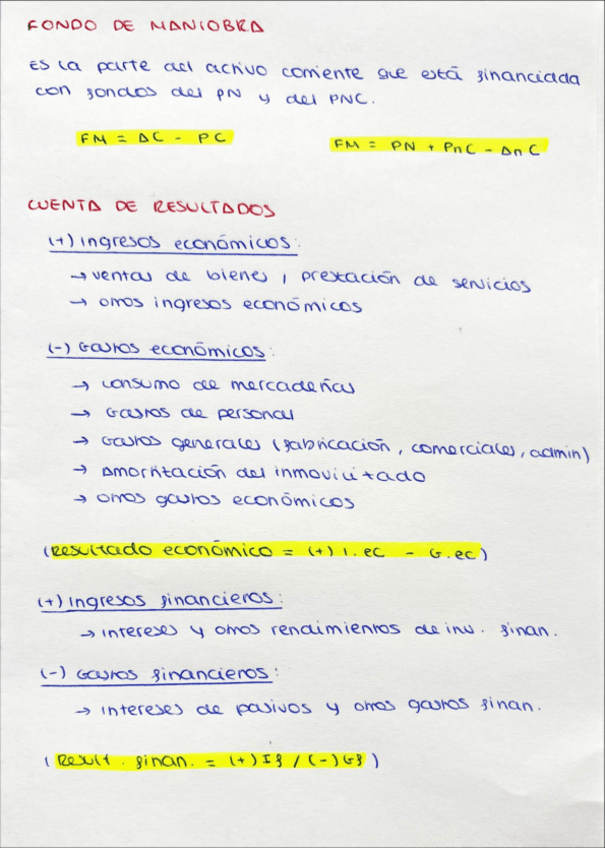 FONDO DE MANIOBRA
Es la parte del activo corriente que está financiada
con fondos del PN y del PNC.
FM = AC - PC
FM = PN + PnC - AnC
CUENTA DE RESULTADOS
(+) Ingresos económicos:
→ ventas de bienes, prestación de servicios
→ otros ingresos económicos
(-) Gastos económicos:
→ consumo de mercaderías
→ Gastos de personal
→ Gastos generales (fabricación, comerciales, admin)
→ Amortización del inmovilizado
→ otros gastos económicos
(Resultado económico = (+) I. ec - G. ec)
(+) Ingresos financieros:
→ intereses y otros rendimientos de inv. finan.
(-) Gastos financieros:
→ intereses de pasivos y otros gastos finan.
(Result. finan. = (+) If / (-) Gf)